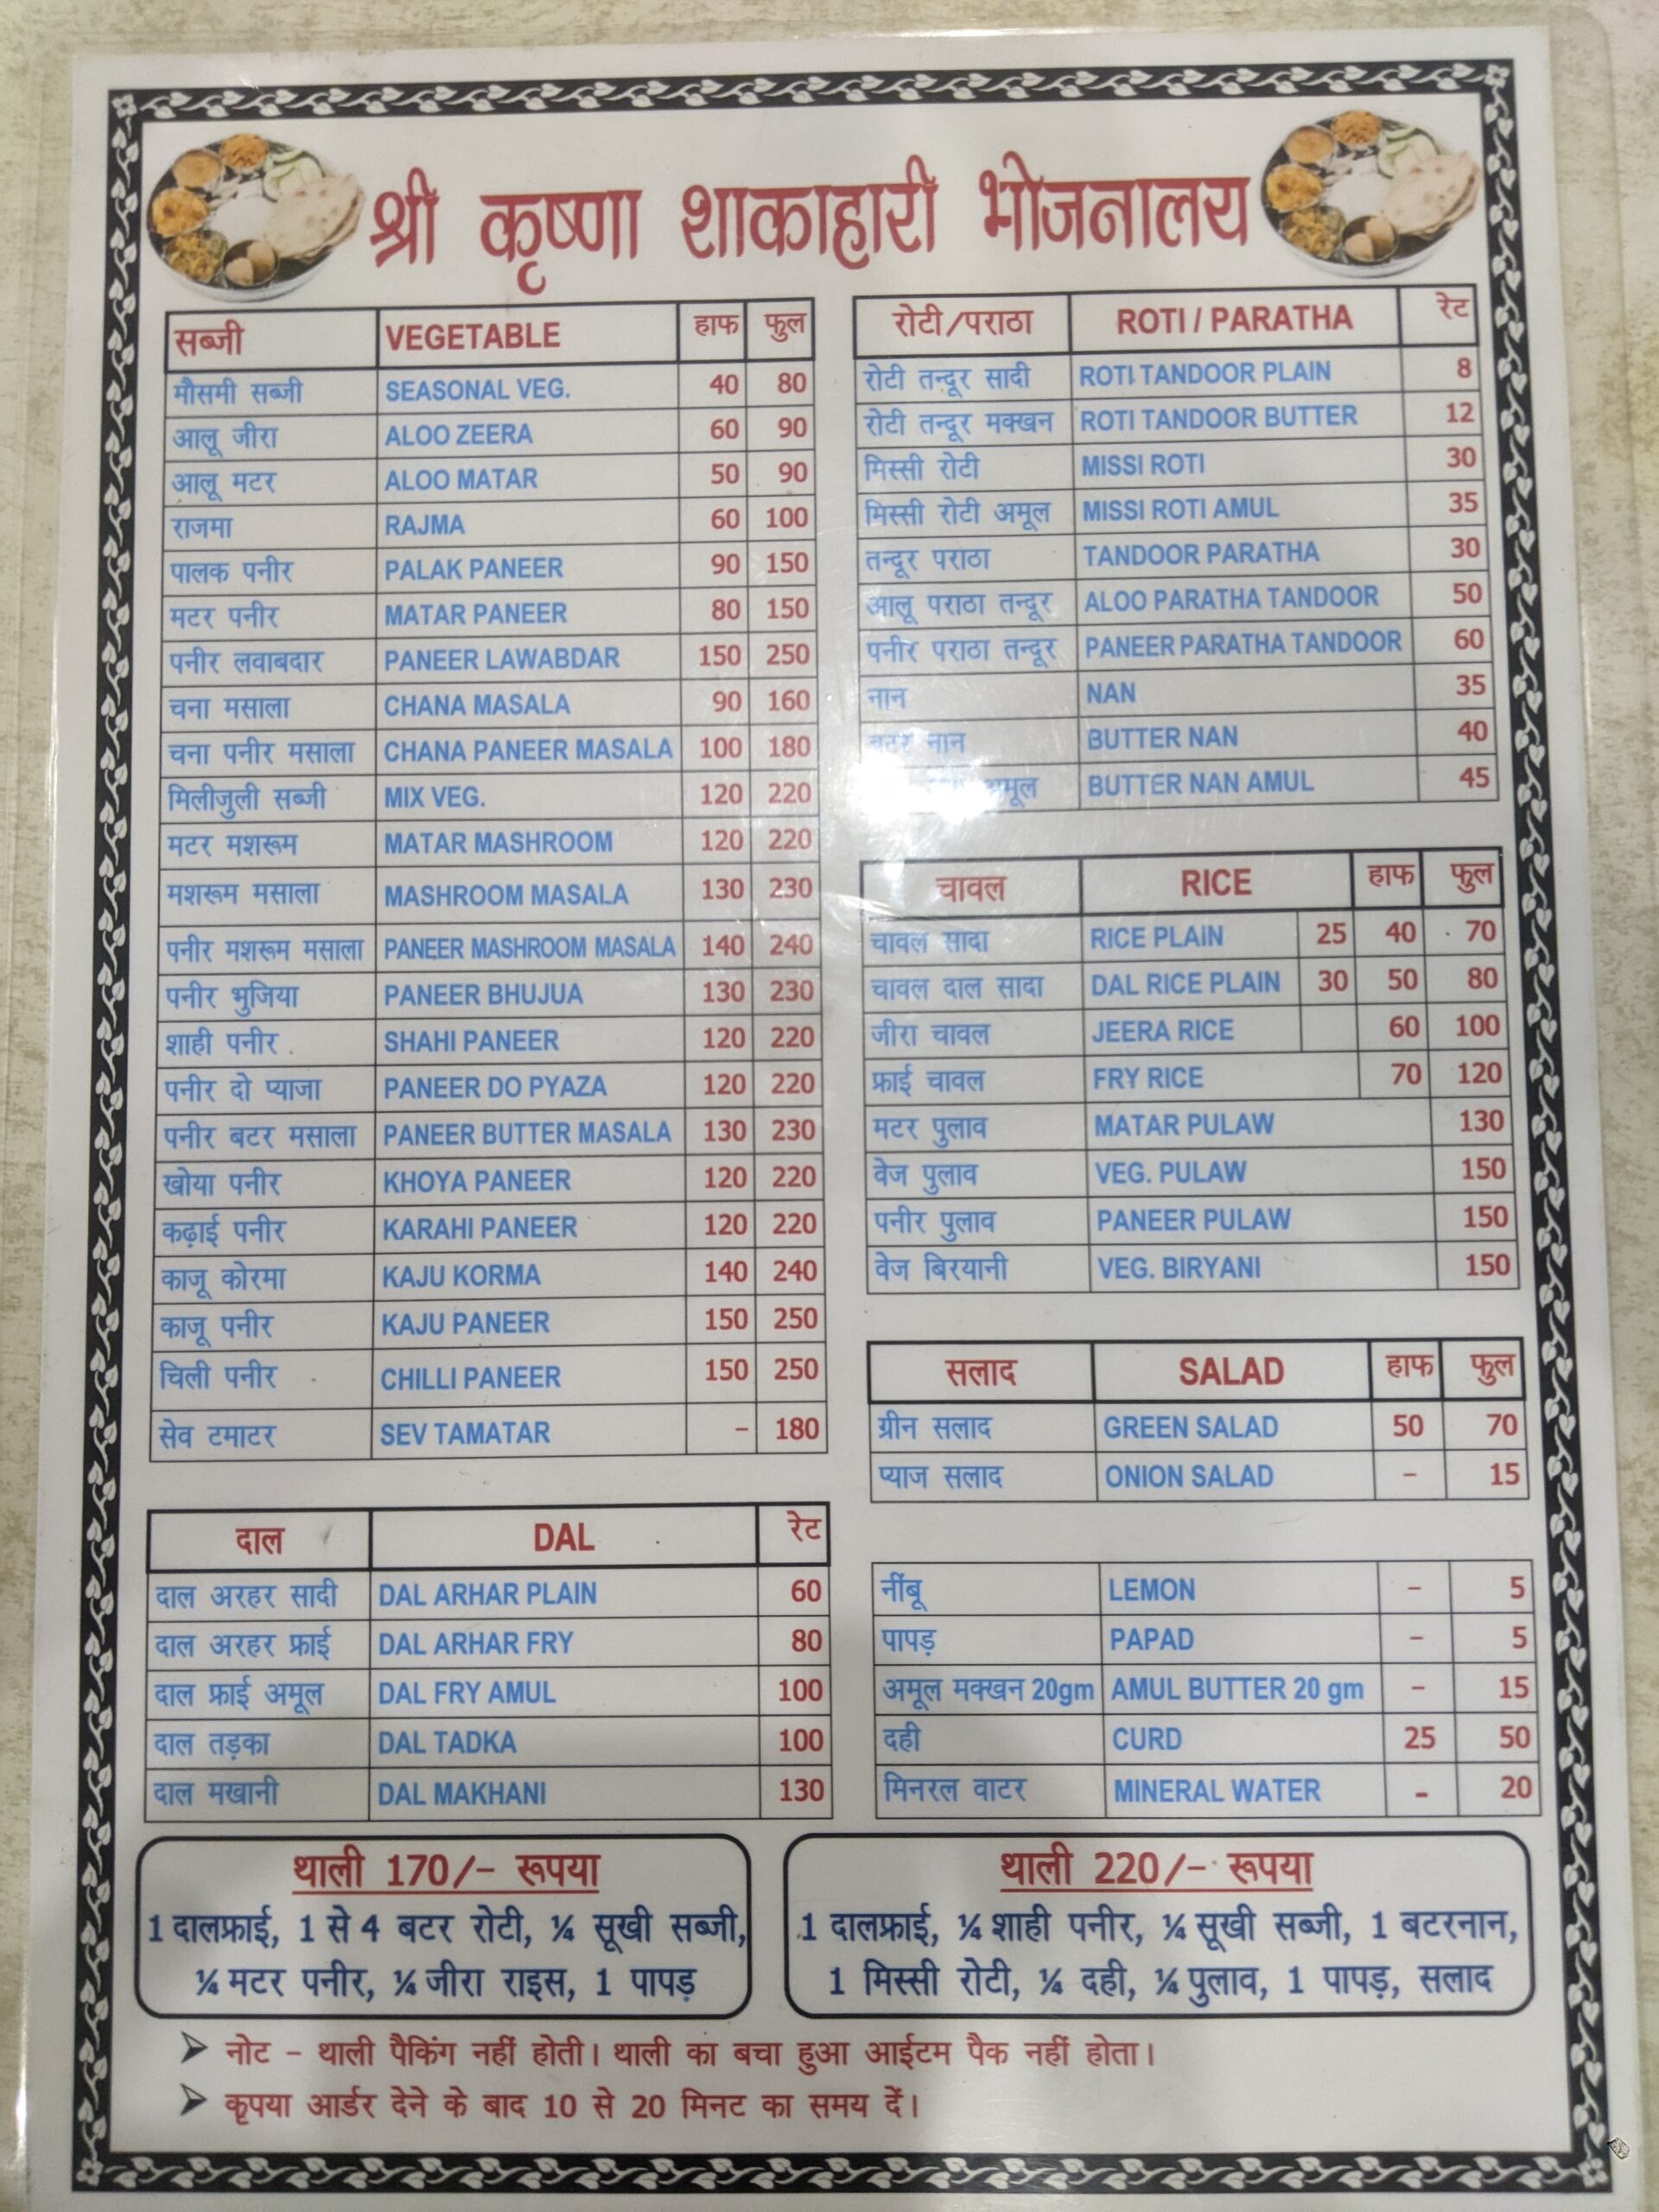 श्री कृष्णा शाकाहारी भोजनालय
सब्जी VEGETABLE हाफ फुल
मौसमी सब्जी SEASONAL VEG. 40 80
आलू जीरा ALOO ZEERA 60 90
आलू मटर ALOO MATAR 50 90
राजमा RAJMA 60 100
पालक पनीर PALAK PANEER 90 150
मटर पनीर MATAR PANEER 80 150
पनीर लवाबदार PANEER LAWABDAR 150 250
चना मसाला CHANA MASALA 90 160
चना पनीर मसाला CHANA PANEER MASALA 100 180
मिलीजुली सब्जी MIX VEG. 120 220
मटर मशरूम MATAR MASHROOM 120 220
मशरूम मसाला MASHROOM MASALA 130 230
पनीर मशरूम मसाला PANEER MASHROOM MASALA 140 240
पनीर भुजिया PANEER BHUJUA 130 230
शाही पनीर SHAHI PANEER 120 220
पनीर दो प्याजा PANEER DO PYAZA 120 220
पनीर बटर मसाला PANEER BUTTER MASALA 130 230
खोया पनीर KHOYA PANEER 120 220
कढ़ाई पनीर KARAHI PANEER 120 220
काजू कोरमा KAJU KORMA 140 240
काजू पनीर KAJU PANEER 150 250
चिली पनीर CHILLI PANEER 150 250
सेव टमाटर SEV TAMATAR – 180
दाल DAL रेट
दाल अरहर सादी DAL ARHAR PLAIN 60
दाल अरहर फ्राई DAL ARHAR FRY 80
दाल फ्राई अमूल DAL FRY AMUL 100
दाल तड़का DAL TADKA 100
दाल मखानी DAL MAKHANI 130
रोटी/पराठा ROTI / PARATHA रेट
रोटी तन्दूर सादी ROTI TANDOOR PLAIN 8
रोटी तन्दूर मक्खन ROTI TANDOOR BUTTER 12
मिस्सी रोटी MISSI ROTI 30
मिस्सी रोटी अमूल MISSI ROTI AMUL 35
तन्दूर पराठा TANDOOR PARATHA 30
आलू पराठा तन्दूर ALOO PARATHA TANDOOR 50
पनीर पराठा तन्दूर PANEER PARATHA TANDOOR 60
नान NAN 35
बटर नान BUTTER NAN 40
अमूल BUTTER NAN AMUL 45
चावल RICE हाफ फुल
चावल सादा RICE PLAIN 25 40 70
चावल दाल सादा DAL RICE PLAIN 30 50 80
जीरा चावल JEERA RICE 60 100
फ्राई चावल FRY RICE 70 120
मटर पुलाव MATAR PULAW 130
वेज पुलाव VEG. PULAW 150
पनीर पुलाव PANEER PULAW 150
वेज बिरयानी VEG. BIRYANI 150
सलाद SALAD हाफ फुल
ग्रीन सलाद GREEN SALAD 50 70
प्याज सलाद ONION SALAD – 15
नींबू LEMON – 5
पापड़ PAPAD – 5
अमूल मक्खन 20gm AMUL BUTTER 20 gm – 15
दही CURD 25 50
मिनरल वाटर MINERAL WATER - 20
थाली 170/– रूपया
1 दालफ्राई, 1 से 4 बटर रोटी, ¼ सूखी सब्जी,
¼ मटर पनीर, ¼ जीरा राइस, 1 पापड़
थाली 220/– रूपया
1 दालफ्राई, ¼ शाही पनीर, ¼ सूखी सब्जी, 1 बटरनान,
1 मिस्सी रोटी, ¼ दही, ¼ पुलाव, 1 पापड़, सलाद
➢ नोट – थाली पैकिंग नहीं होती। थाली का बचा हुआ आईटम पैक नहीं होता।
➢ कृपया आर्डर देने के बाद 10 से 20 मिनट का समय दें।